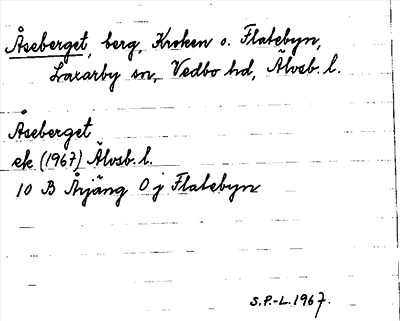 Åseberget, berg, Kroken o. Flatebyn,
Laxarby sn, Vedbo hd, Älvsb. l.
Åseberget
ek (1967) Älvsb. l.
10 B Årjäng 0 j Flatebyn
S.P.-L. 1967.